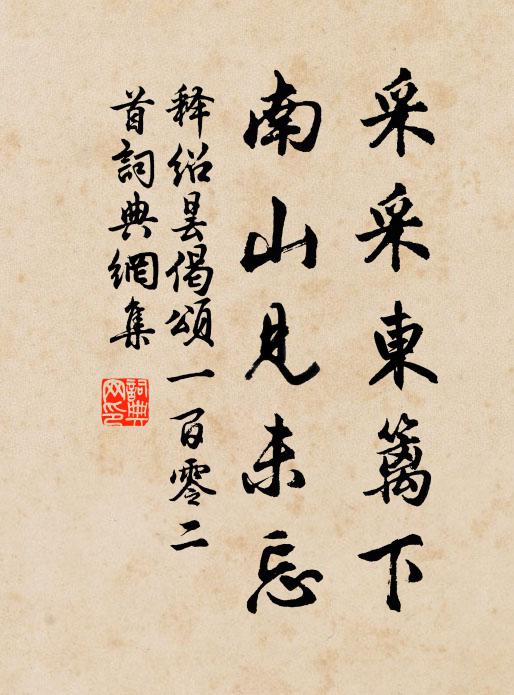 采采東籬下
南山見未忘
释绍昙偈頌一百零二
首詞典網集
詞典
网印